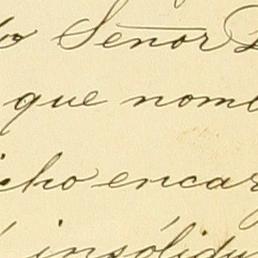 Señor
que nom
cho encar
insólidu